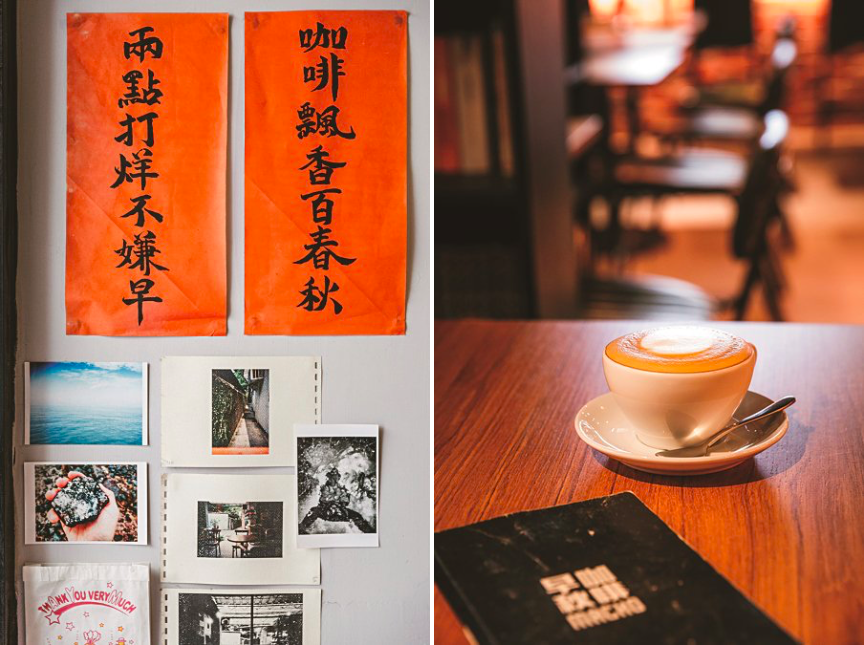 咖啡飄香百春秋
兩點打烊不嫌早
THANK YOU VERY MUCH
咖啡